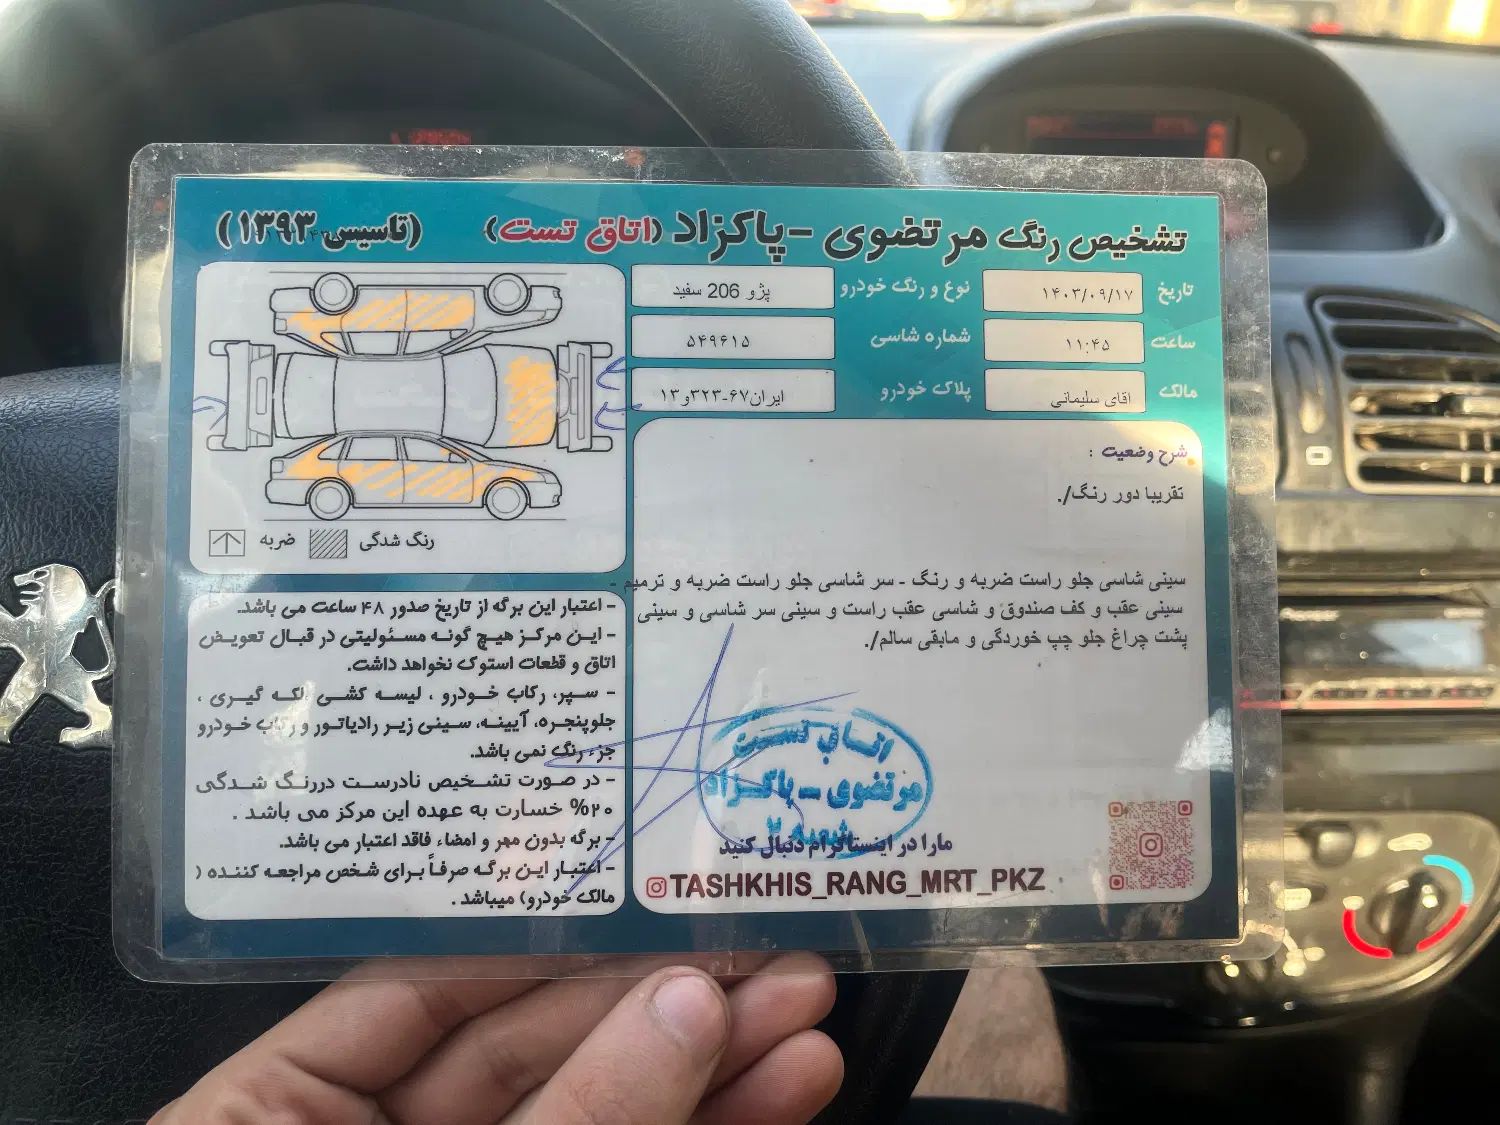 تشخیص رنگ مرتضوی -پاکزاد (اتاق تست) (تاسیس ۱۳۹۳)
تاریخ ۱۴۰۳/۰۹/۱۷ نوع و رنگ خودرو پژو 206 سفید
ساعت ۱۱:۴۵ شماره شاسی ۵۴۹۶۱۵
مالک اقای سلیمانی پلاک خودرو ایران۶۷-۳۲۳و۱۳
شرح وضعیت :
تقریبا دور رنگ/.
سینی شاسی جلو راست ضربه و رنگ - سر شاسی جلو راست ضربه و ترمیم -
سینی عقب و کف صندوق و شاسی عقب راست و سینی سر شاسی و سینی
پشت چراغ جلو چپ خوردگی و مابقی سالم/.
اتاق تست
مرتضوی - پاکزاد
شعبه ۲
مارا در اینستاگرام دنبال کنید
TASHKHIS_RANG_MRT_PKZ
رنگ شدگی ضربه
- اعتبار این برگه از تاریخ صدور ۴۸ ساعت می باشد.
- این مرکز هیچ گونه مسئولیتی در قبال تعویض
اتاق و قطعات استوک نخواهد داشت.
- سپر، رکاب خودرو ، لیسه کشی ،لکه گیری ،
جلوپنجره، آیینه، سینی زیر رادیاتور و رکاب خودرو
جزء رنگ نمی باشد.
- در صورت تشخیص نادرست دررنگ شدگی
۲۰% خسارت به عهده این مرکز می باشد .
- برگه بدون مهر و امضاء فاقد اعتبار می باشد.
- اعتبار این برگه صرفاً برای شخص مراجعه کننده (
مالک خودرو) میباشد .